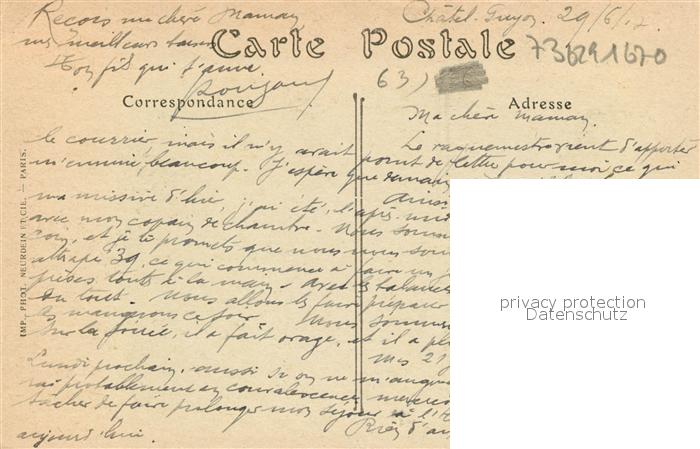 Reçois ma chère Maman
mes meilleurs baisers
Ton fils qui t'aime
Châtel-Guyon. 29/6/17
Carte Postale
736291670
63)
Correspondance
Adresse
Ma chère Maman,
Le vaguemestre vient d'apporter
le courrier mais il n'y avait point de lettre pour moi ce qui
m'ennuie beaucoup. J'espère que demain
Ainsi
ma missive d'hier, j'ai été, l'après-midi
avec mon copain de chambre. Nous sommes
coin, et je te promets que nous nous som
attrapé 39, ce qui commence à faire un
prises toutes à la main. Avec les balances
du tout. Nous allons les faire préparer
les mangerons ce soir. Nous sommes
Sur la soirée, il a fait orage, et il a pl
Mes 21
Lundi prochain, aussi si on ne m'augm
rai probablement en convalescence mercre
tâcher de faire prolonger mon séjour à l'H
Rien d'au
aujourd'hui.
IMP. PHOT. NEURDEIN ET CIE. — PARIS.
privacy protection
Datenschutz